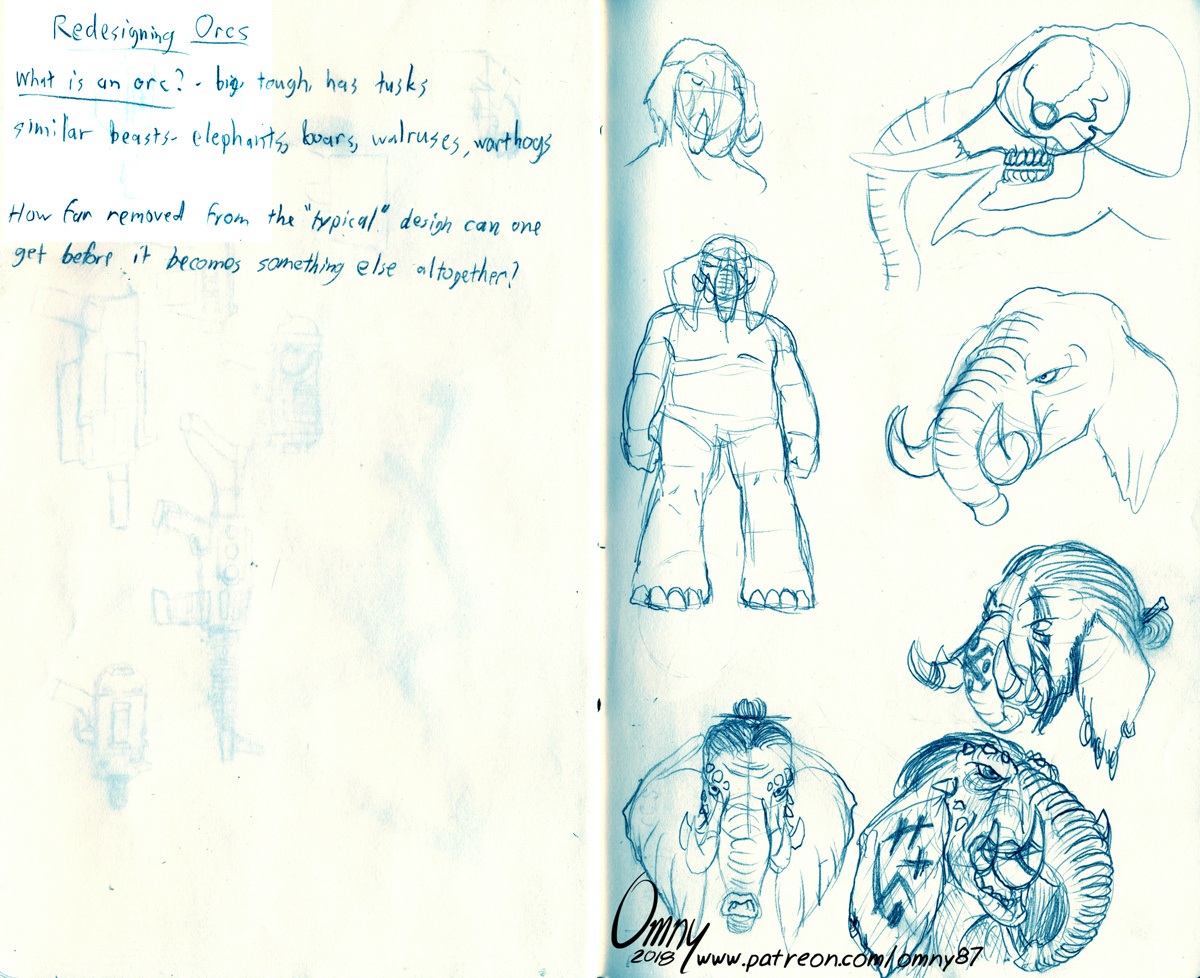 Redesigning Orcs
What is an orc? - big, tough, has tusks
similar beasts- elephants, boars, walruses, warthogs
How far removed from the "typical" design can one
get before it becomes something else altogether?
Omny
2018 www.patreon.com/omny87